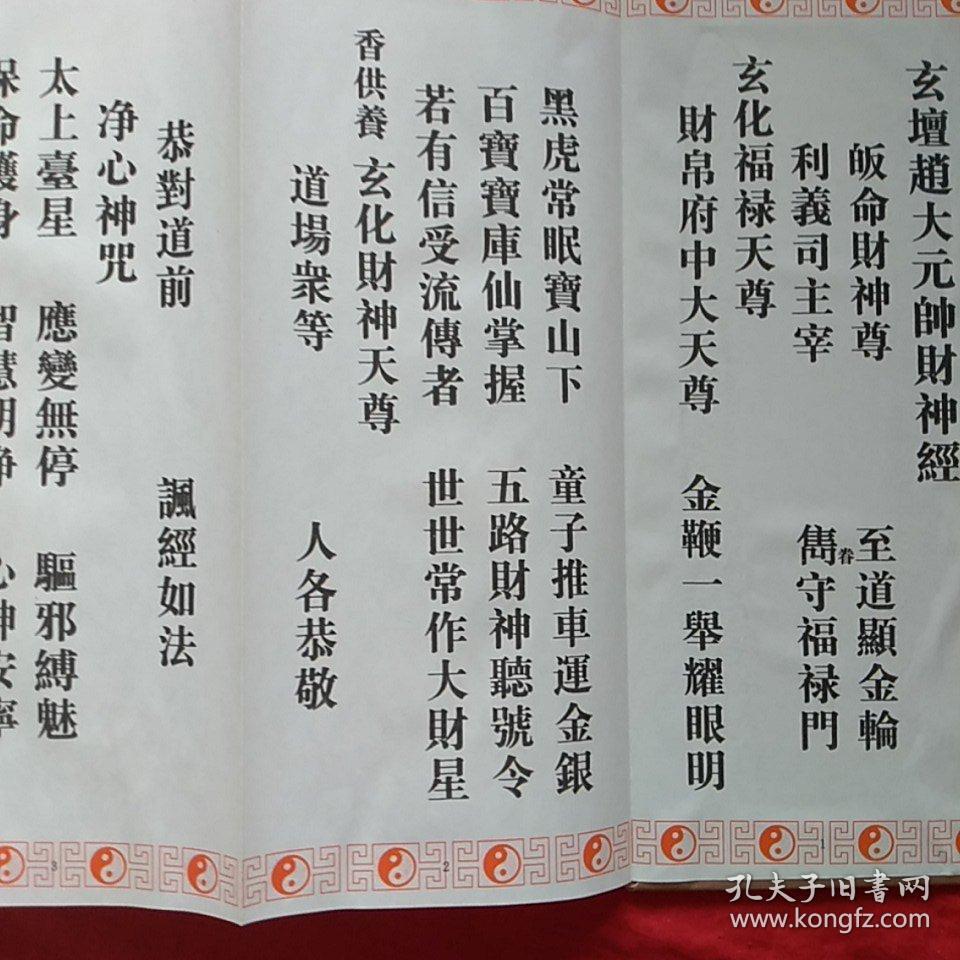 玄壇趙大元帥財神經
皈命財神尊　至道顯金輪
利義司主宰　雋守福禄門
眷
玄化福禄天尊
財帛府中大天尊　金鞭一舉耀眼明
黑虎常眠寶山下　童子推車運金銀
百寶寶庫仙掌握　五路財神聽號令
若有信受流傳者　世世常作大財星
香供養　玄化財神天尊
道場衆等　人各恭敬
恭對道前　諷經如法
净心神咒
太上臺星　應變無停　驅邪縛魅
保命護身　智慧明净　心神安寧
1
2
3
孔夫子旧书网
www.kongfz.com